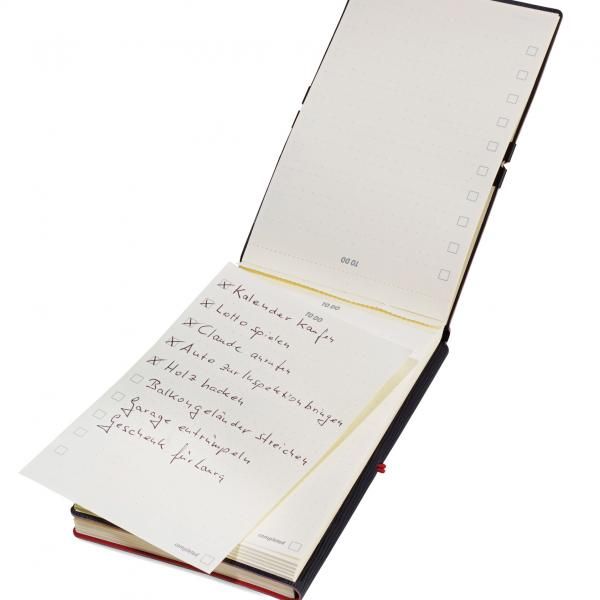 TO DO
TO DO
TO DO
Kalender kaufen
Lotto spielen
Claude anrufen
Auto zur Inspektion bringen
Holz hacken
Balkongeländer streichen
Garage entrümpeln
Geschenk für Laura
completed
completed